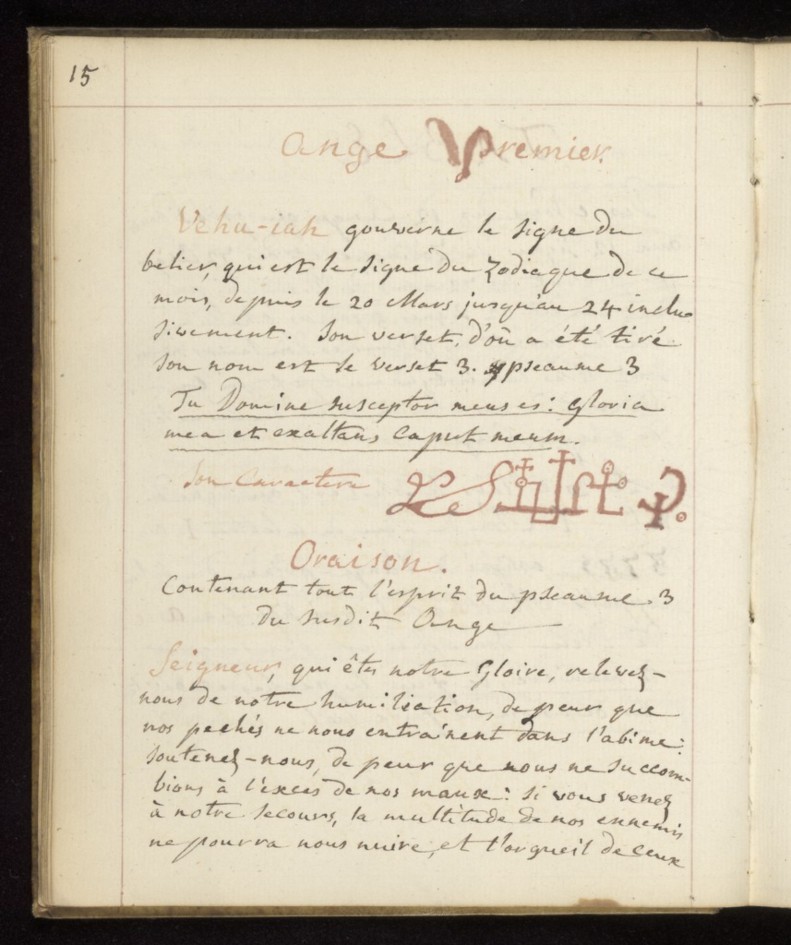 15
Ange Premier
Vehu-iah gouverne le signe du
belier, qui est le signe du Zodiaque de ce
mois, depuis le 20 Mars jusqu'au 24 inclu
sivement. Son verset, d'où a été tiré
son nom est le verset 3. pseaume 3
Tu Domine susceptor meus es: gloria
mea et exaltans caput meum.
Son Caractere
Oraison.
Contenant tout l'esprit du pseaume 3
du susdit Ange
Seigneur, qui êtes notre Gloire, relevez-
nous de notre humiliation, de peur que
nos pechés ne nous entraînent dans l'abime:
soutenez-nous, de peur que nous ne succom-
bions à l'excès de nos maux: si vous venez
à notre secours, la multitude de nos ennemis
ne pourra nous nuire, et l'orgueil de ceux